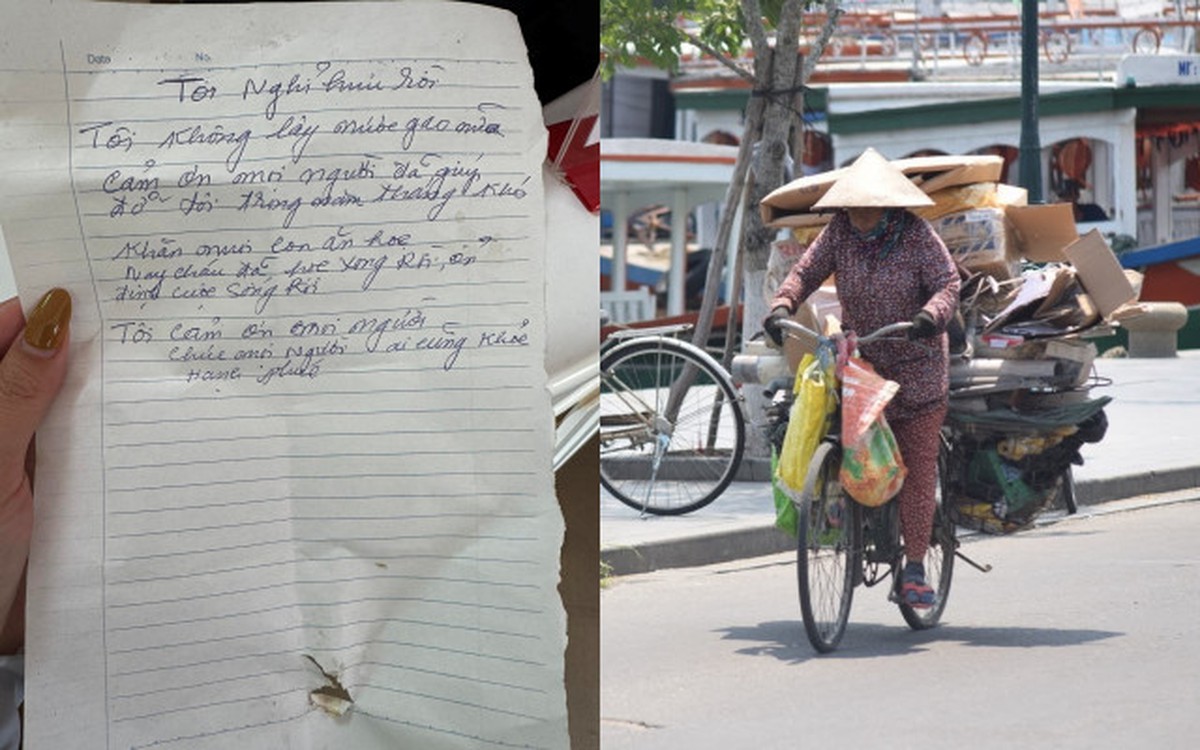 Date No.
Tôi Nghỉ hưu rồi
Tôi không lấy nước gạo nữa
Cảm ơn mọi người đã giúp
đỡ tôi trong năm tháng khó
khăn nuôi con ăn học
Nay cháu đã học xong Rồi, ổn
định cuộc sống Rồi
Tôi cảm ơn mọi người
chúc mọi Người ai cũng khoẻ
Hạnh phúc